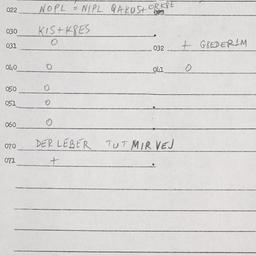 022 NOPL = NIPL GAKUST ORKSE
030 KIS+KBES
031 0 032 + GREDERIM
040 0 041 0
050 0
051 0
060 0
070 DER LEBER TUT MIR VEJ
071 +